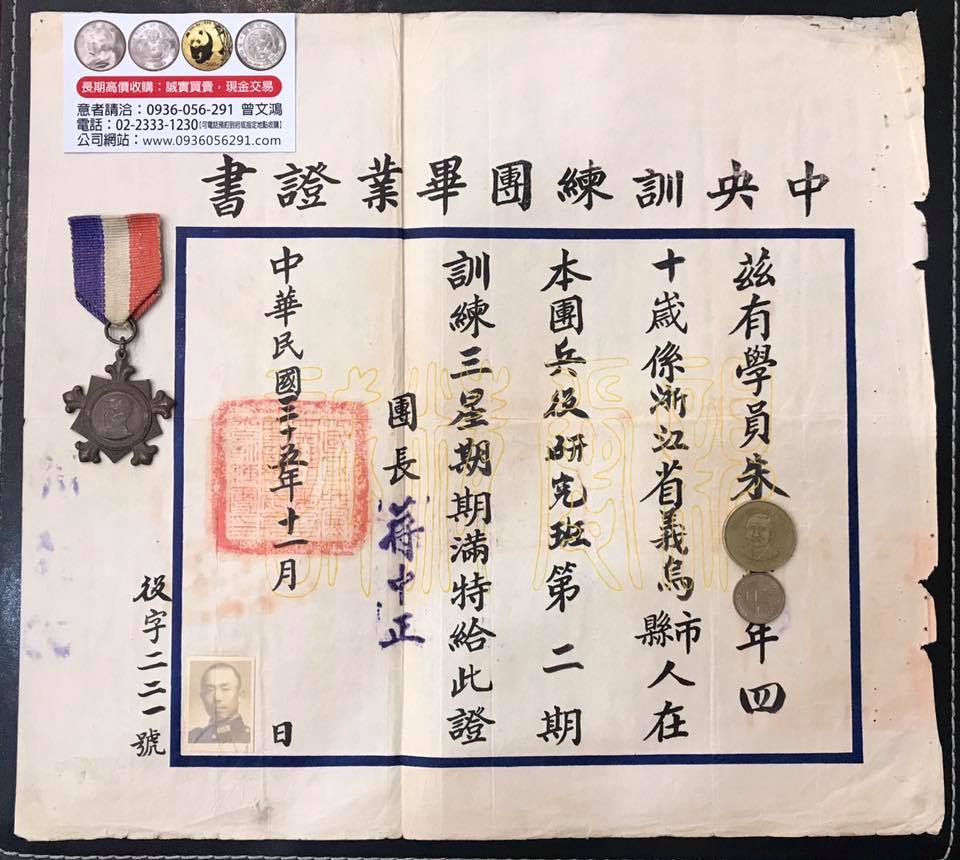 長期高價收購：誠實買賣，現金交易
意者請洽：0936-056-291 曾文鴻
電話：02-2333-1230【可電話預約到府或指定地點收購】
公司網站：www.0936056291.com
中央訓練團畢業證書
茲有學員朱
年四
十歲係浙江省義烏縣市人在
本團兵役研究班第二期
訓練三星期期滿特給此證
團長蔣中正
中華民國三十五年十一月
日
役字二二一號